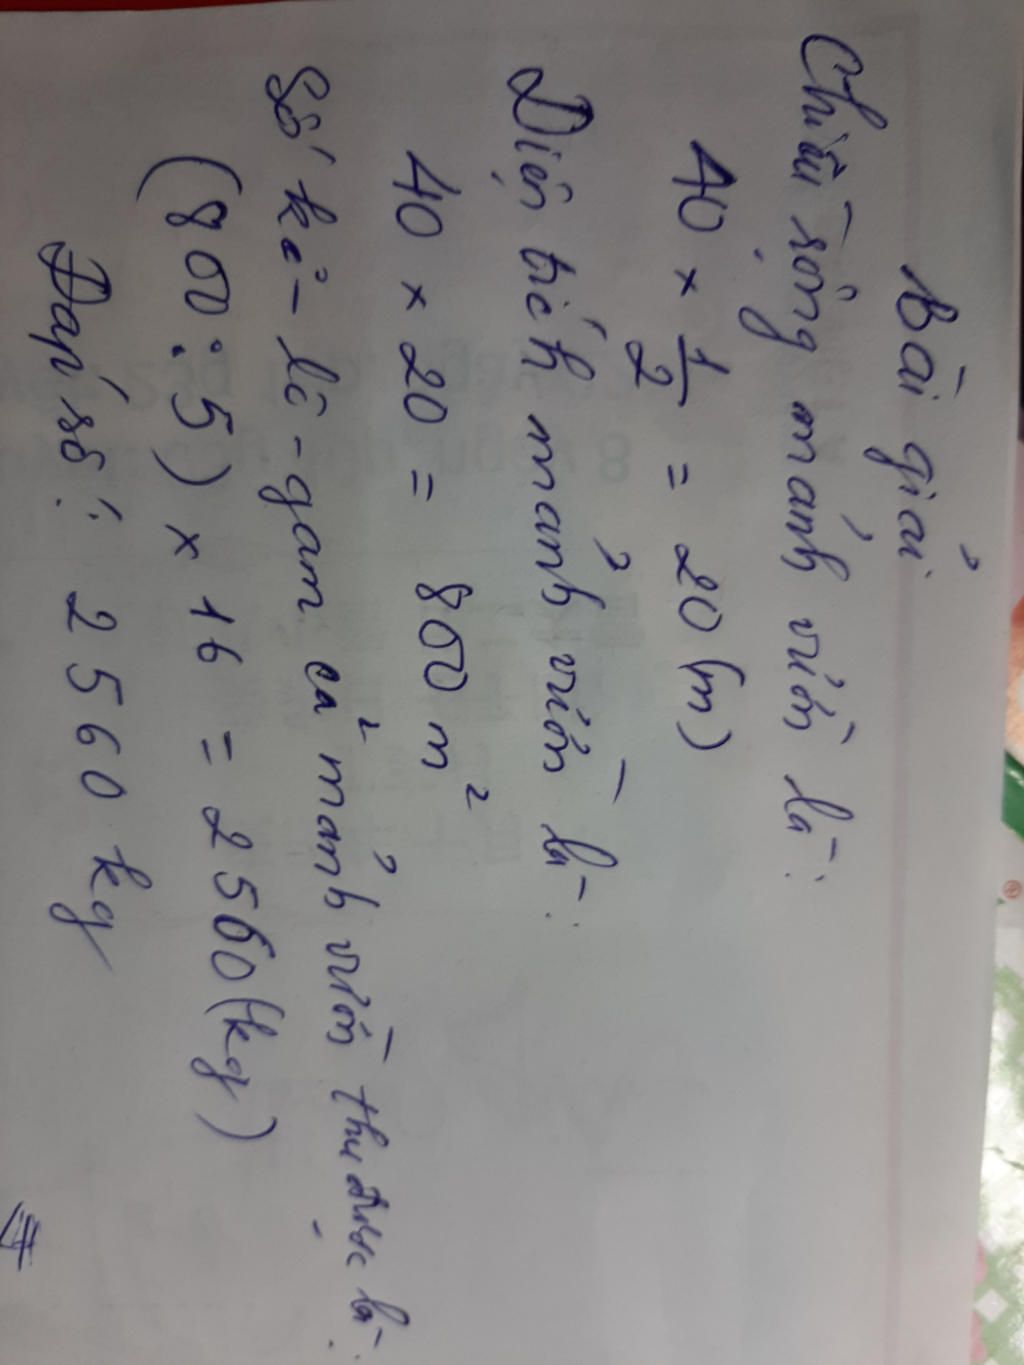 Bài giải
Chiều rộng mảnh vườn là:
40 × 1/2 = 20 (m)
Diện tích mảnh vườn là:
40 × 20 = 800 m²
Số ki-lô-gam cả mảnh vườn thu được là:
(800 : 5) × 16 = 2560 (kg)
Đáp số: 2560 kg